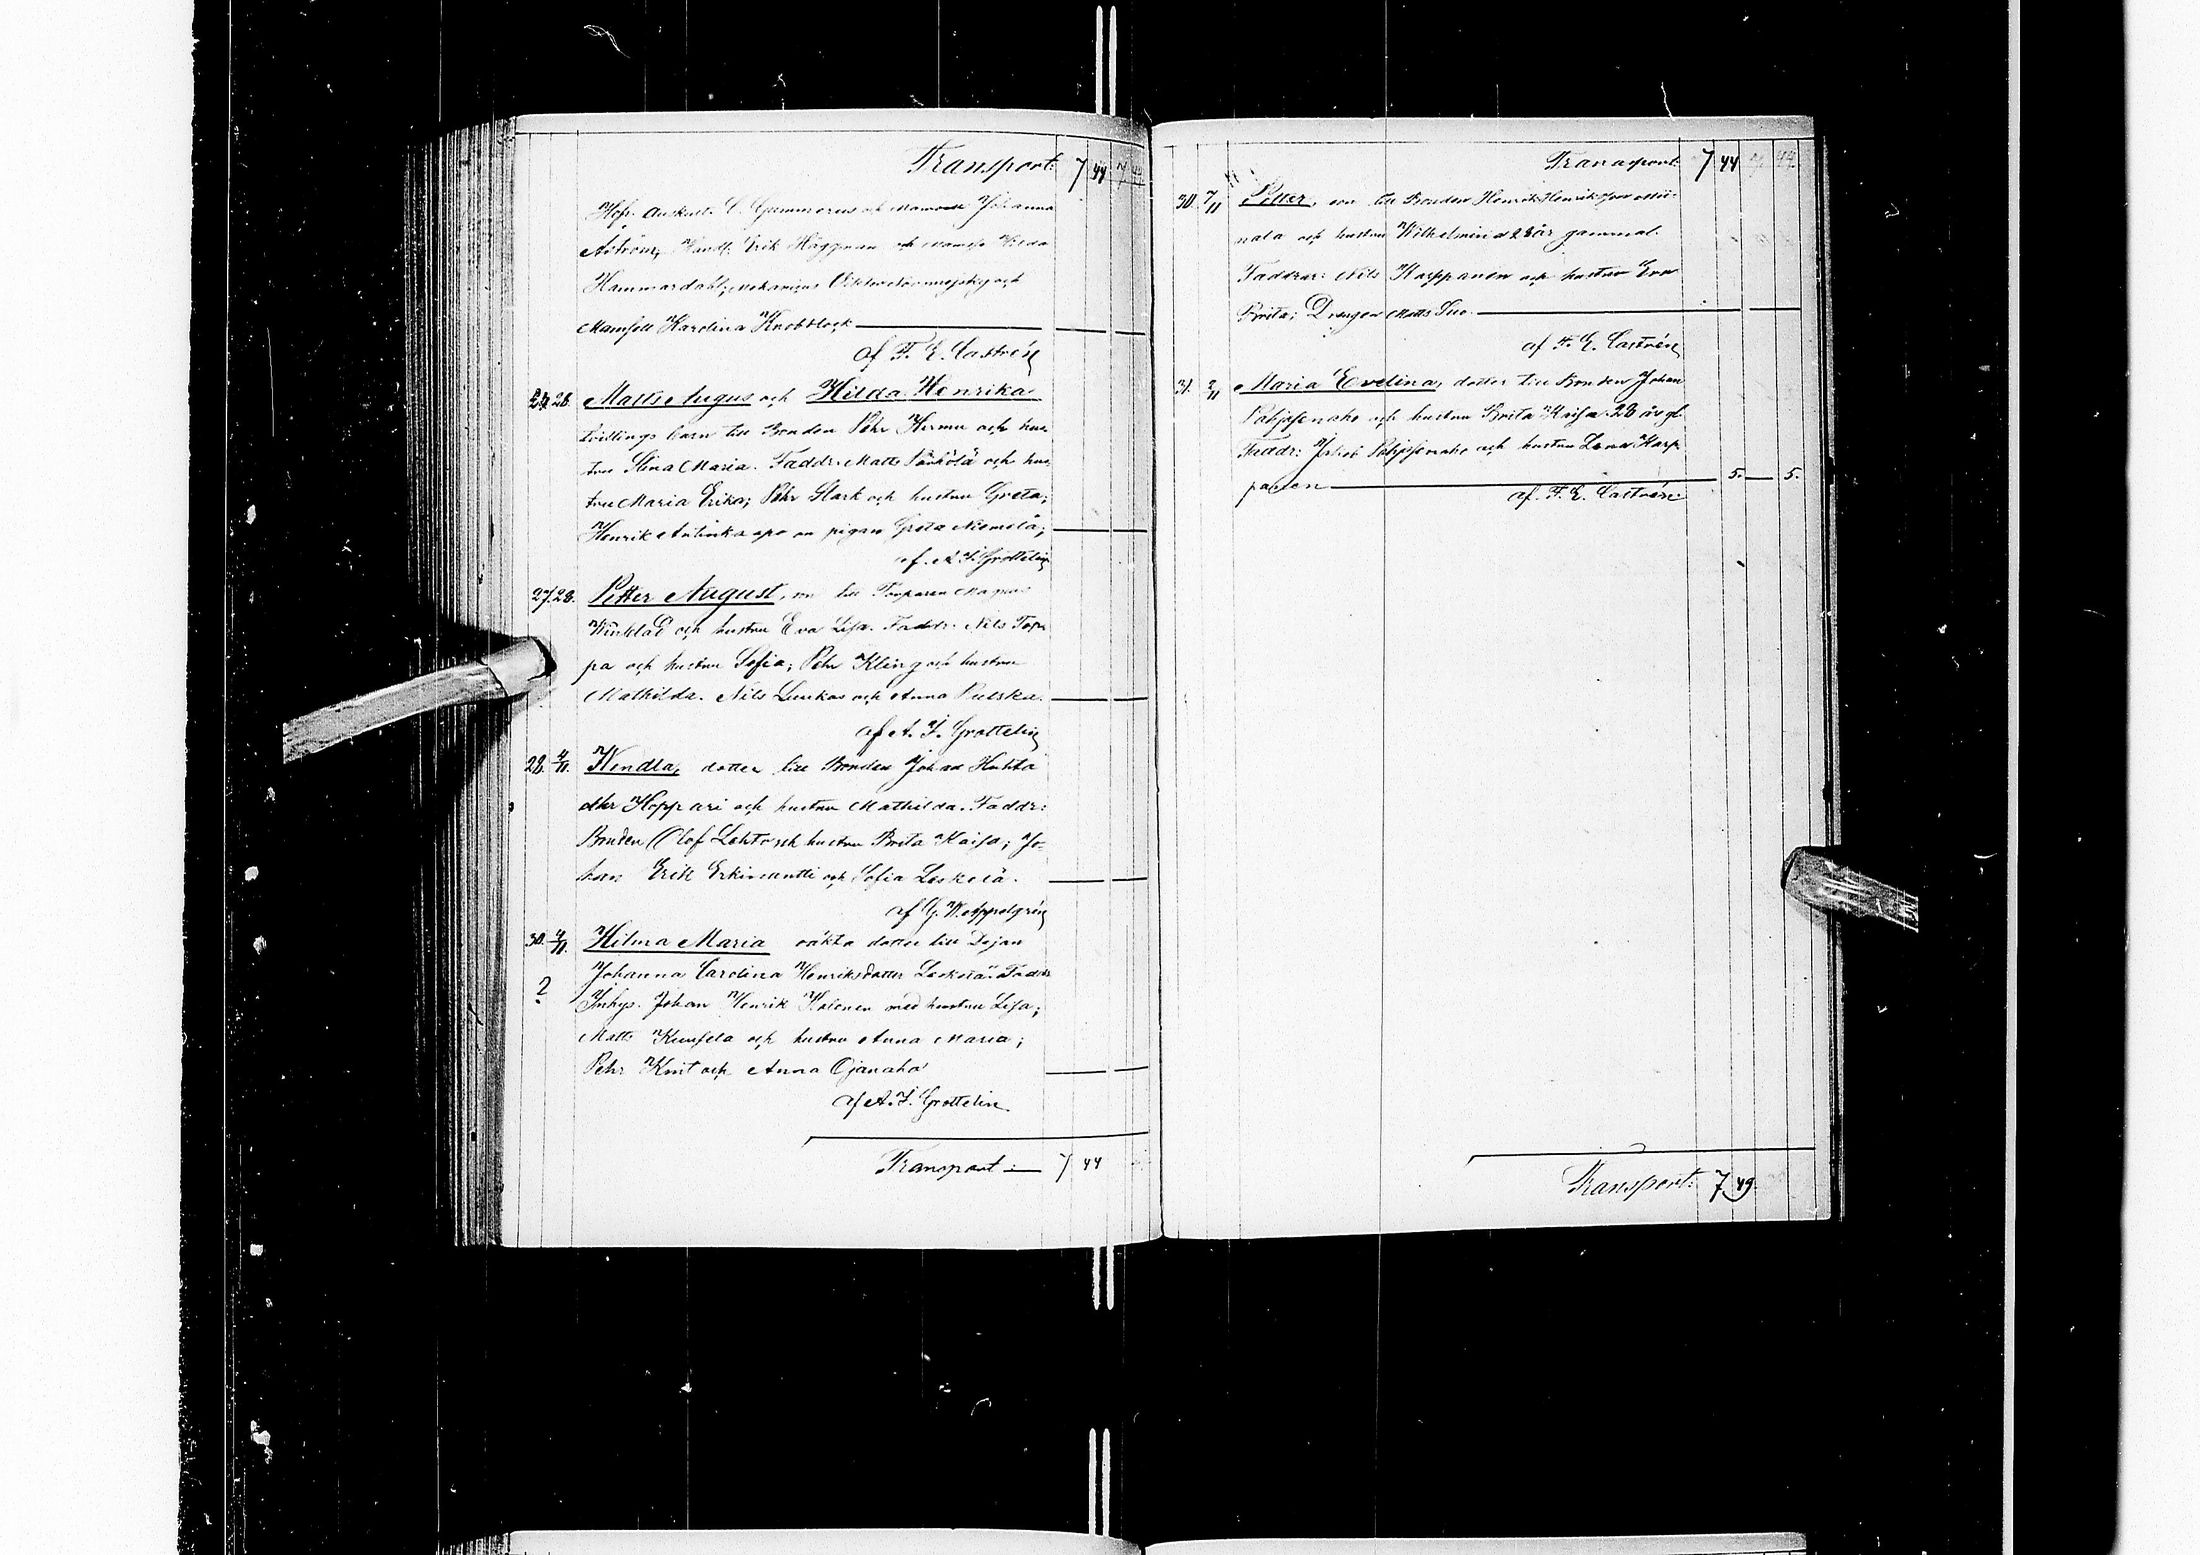 Transport: 7 44
Hofr. Auskult. C. Gummerus och Johanna
Åström, Handl. Erik Häggman och Mamsll Hilda
Hammardahl;
Mamsell Karolina Knobblock
af F. E. Castrén
28. Matts August och Hilda Henrika
tvillings barn till Bonden Pehr Hermu och hus-
tru Stina Maria. Faddr. Matts och hus-
tru Maria Erika; Pehr Stark och hustru Greta;
Henrik och pigan Greta Niemelä;
af A. I. Grottelin
27. 28. Petter August, son till Torparen Magnus
Winklad och hustru Eva Lisa. Faddr. Nils Top-
pa och hustru Sofia; Pehr Kling och hustru
Mathilda. Nils Luukas och Anna
af A. I. Grottelin
28. 4/11. Wendla, dotter till Bonden Johan Huhta
eller Hoppari och hustru Mathilda. Faddr:
Bonden Olof Lehto och hustru Brita Kaisa; Jo-
han Erik och Sofia Leskelä.
af G. W. Appelgrén
30. 4/11. Hilma Maria oäkta dotter till Dejan
Johanna Carolina Henriksdotter Leskelä. Faddr:
? Inhys. Johan Henrik Halonen med hustru Lisa;
Matts och hustru Anna Maria;
Pehr Knit och Anna Ojanaho
af A. I. Grottelin
Transport: 7 44
Transport: 7 44
30. 7/11 Petter, son till Bonden Henrik Henriksson Mii-
nala och hustru Wilhelmina 28 år gammal.
Faddrar: Nils Karppanen och hustru Eva
Brita; Drengen Matts Suo.
af F. E. Castrén
31. 2/11 Maria Evelina, dotter till Bonden Johan
och hustru Brita Kaisa 28 år gl.
Faddr: Jakob och hustru Lena Karp-
panen 5. 5.
af F. E. Castrén
Transport: 7 49